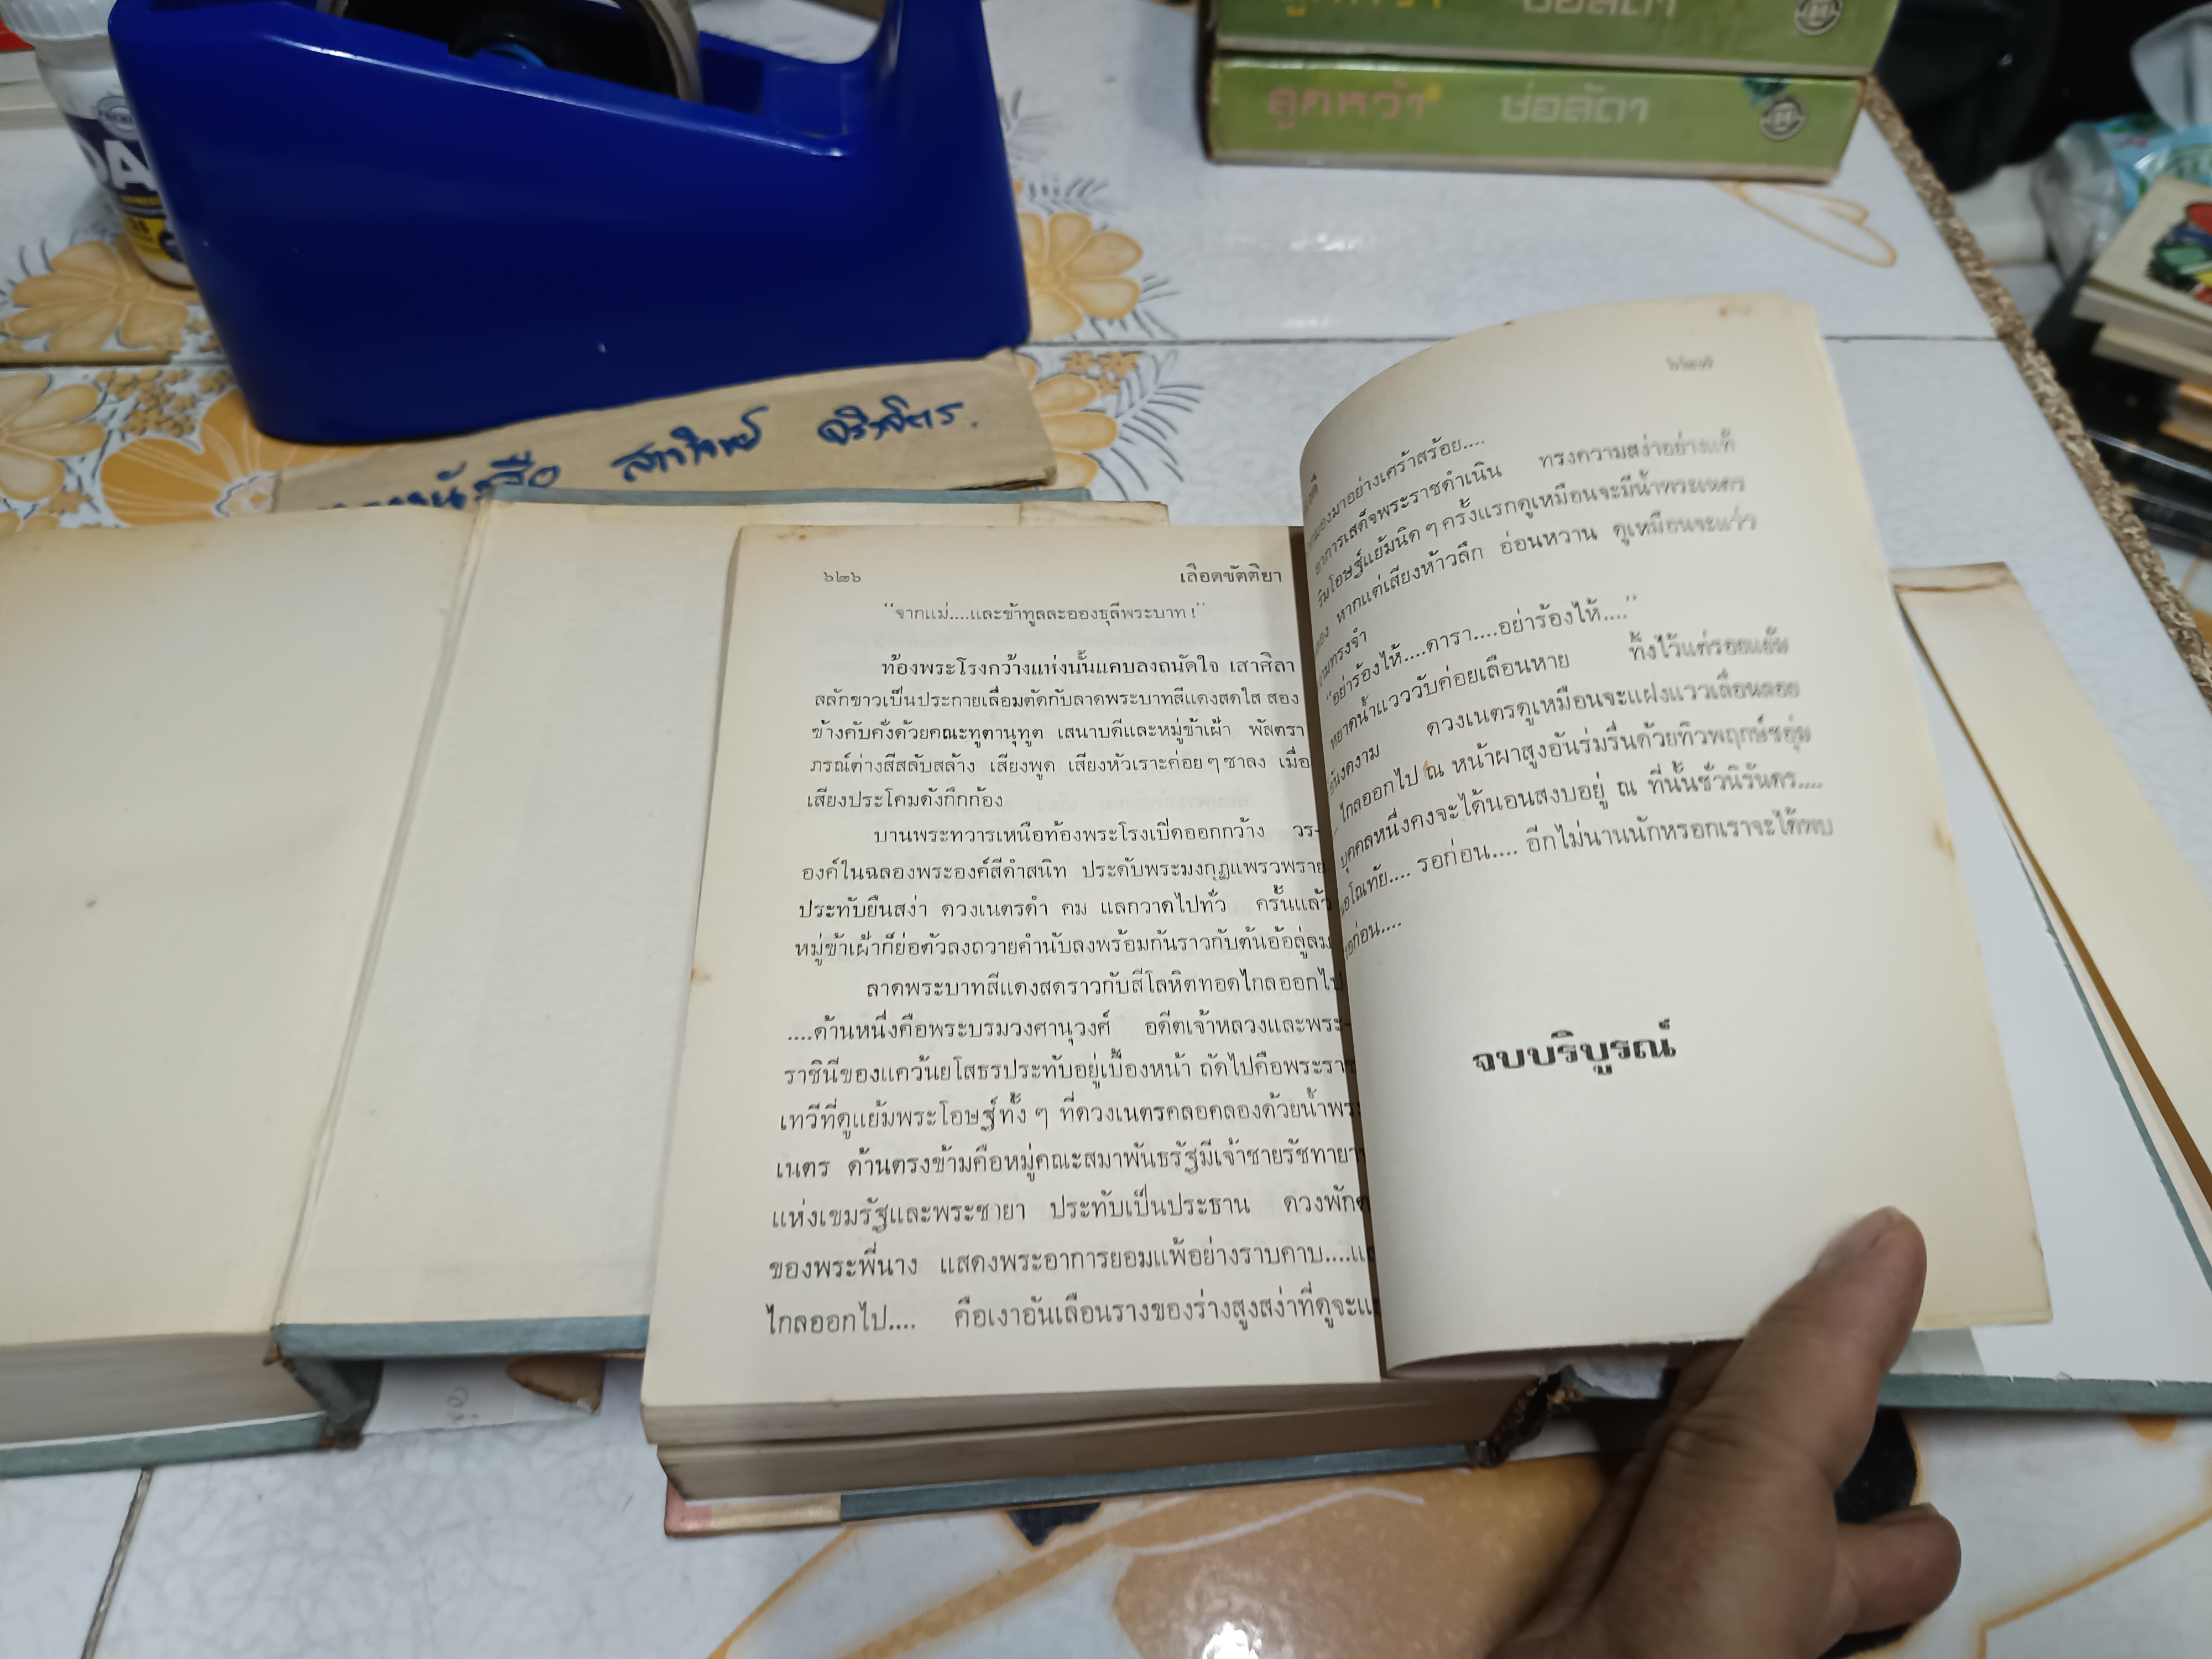 ลูกหว้า ช่อลัดา
DA
หนังสือ
๖๒๖ เลือดขัตติยา
“จากแม่....และข้าทูลละอองธุลีพระบาท !”
ท้องพระโรงกว้างแห่งนั้นแคบลงถนัดใจ เสาศิลา
สลักขาวเป็นประกายเลื่อมตัดกับลาดพระบาทสีแดงสดใส สอง
ข้างคับคั่งด้วยคณะทูตานุทูต เสนาบดีและหมู่ข้าเฝ้า พัสตรา
ภรณ์ต่างสีสลับสล้าง เสียงพูด เสียงหัวเราะค่อย ๆ ซาลง เมื่อ
เสียงประโคมดังกึกก้อง
บานพระทวารเหนือท้องพระโรงเปิดออกกว้าง วร-
องค์ในฉลองพระองค์สีดำสนิท ประดับพระมงกุฎแพรวพราย
ประทับยืนสง่า ดวงเนตรดำ คม แลกวาดไปทั่ว ครั้นแล้ว
หมู่ข้าเฝ้าก็ย่อตัวลงถวายคำนับลงพร้อมกันราวกับต้นอ้อลู่ลม
ลาดพระบาทสีแดงสดราวกับสีโลหิตทอดไกลออกไป
....ด้านหนึ่งคือพระบรมวงศานุวงศ์ อดีตเจ้าหลวงและพระ-
ราชินีของแคว้นยโสธรประทับอยู่เบื้องหน้า ถัดไปคือพระราช
เทวีที่ดูแย้มพระโอษฐ์ทั้ง ๆ ที่ดวงเนตรคลอคลองด้วยน้ำพระ
เนตร ด้านตรงข้ามคือหมู่คณะสมาพันธรัฐมีเจ้าชายรัชทายา
แห่งเขมรัฐและพระชายา ประทับเป็นประธาน ดวงพักต
ของพระพี่นาง แสดงพระอาการยอมแพ้อย่างราบคาบ....แ
ไกลออกไป.... คือเงาอันเลือนรางของร่างสูงสง่าที่ดูจะแ
๖๒๗
มองมาอย่างเศร้าสร้อย....
อาการเสด็จพระราชดำเนิน ทรงความสง่าอย่างแท้
ริมโอษฐ์แย้มนิด ๆ ครั้งแรกดูเหมือนจะมีน้ำพระเนตร
หากแต่เสียงห้าวลึก อ่อนหวาน ดูเหมือนจะแว่ว
ความทรงจำ
“อย่าร้องไห้....ดารา....อย่าร้องไห้....”
หยาดน้ำแวววับค่อยเลือนหาย ทิ้งไว้แต่รอยแย้ม
อันงดงาม ดวงเนตรดูเหมือนจะแฝงแววเลื่อนลอย
ไกลออกไป ณ หน้าผาสูงอันร่มรื่นด้วยทิวพฤกษ์ชอุ่ม
บุคคลหนึ่งคงจะได้นอนสงบอยู่ ณ ที่นั้นชั่วนิรันดร....
อโณทัย.... รอก่อน.... อีกไม่นานนักหรอกเราจะได้พบ
รอก่อน....
จบบริบูรณ์